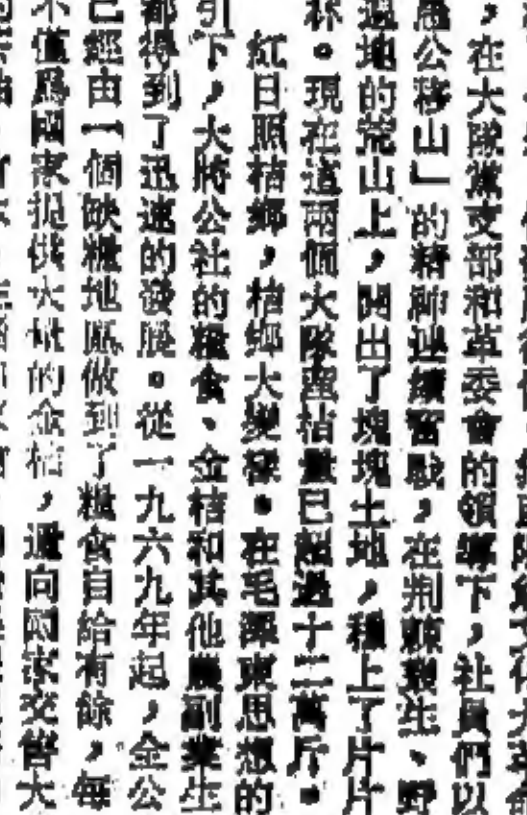 ，在大隊黨支部和革委會的領導下，社員們以
愚公移山」的精神連續奮戰，在荆棘叢生、野
遍地的荒山上，開出了塊塊土地，種上了片片
林。現在這兩個大隊產桔數已超過十二萬斤。
紅日照桔鄉，桔鄉大變樣。在毛澤東思想的
引下，大將公社的糧食、金桔和其他農副業生
都得到了迅速的發展。從一九六九年起，全公
已經由一個缺糧地區做到了糧食自給有餘，每
不值爲國家提供大量的金桔，還向國家交售大